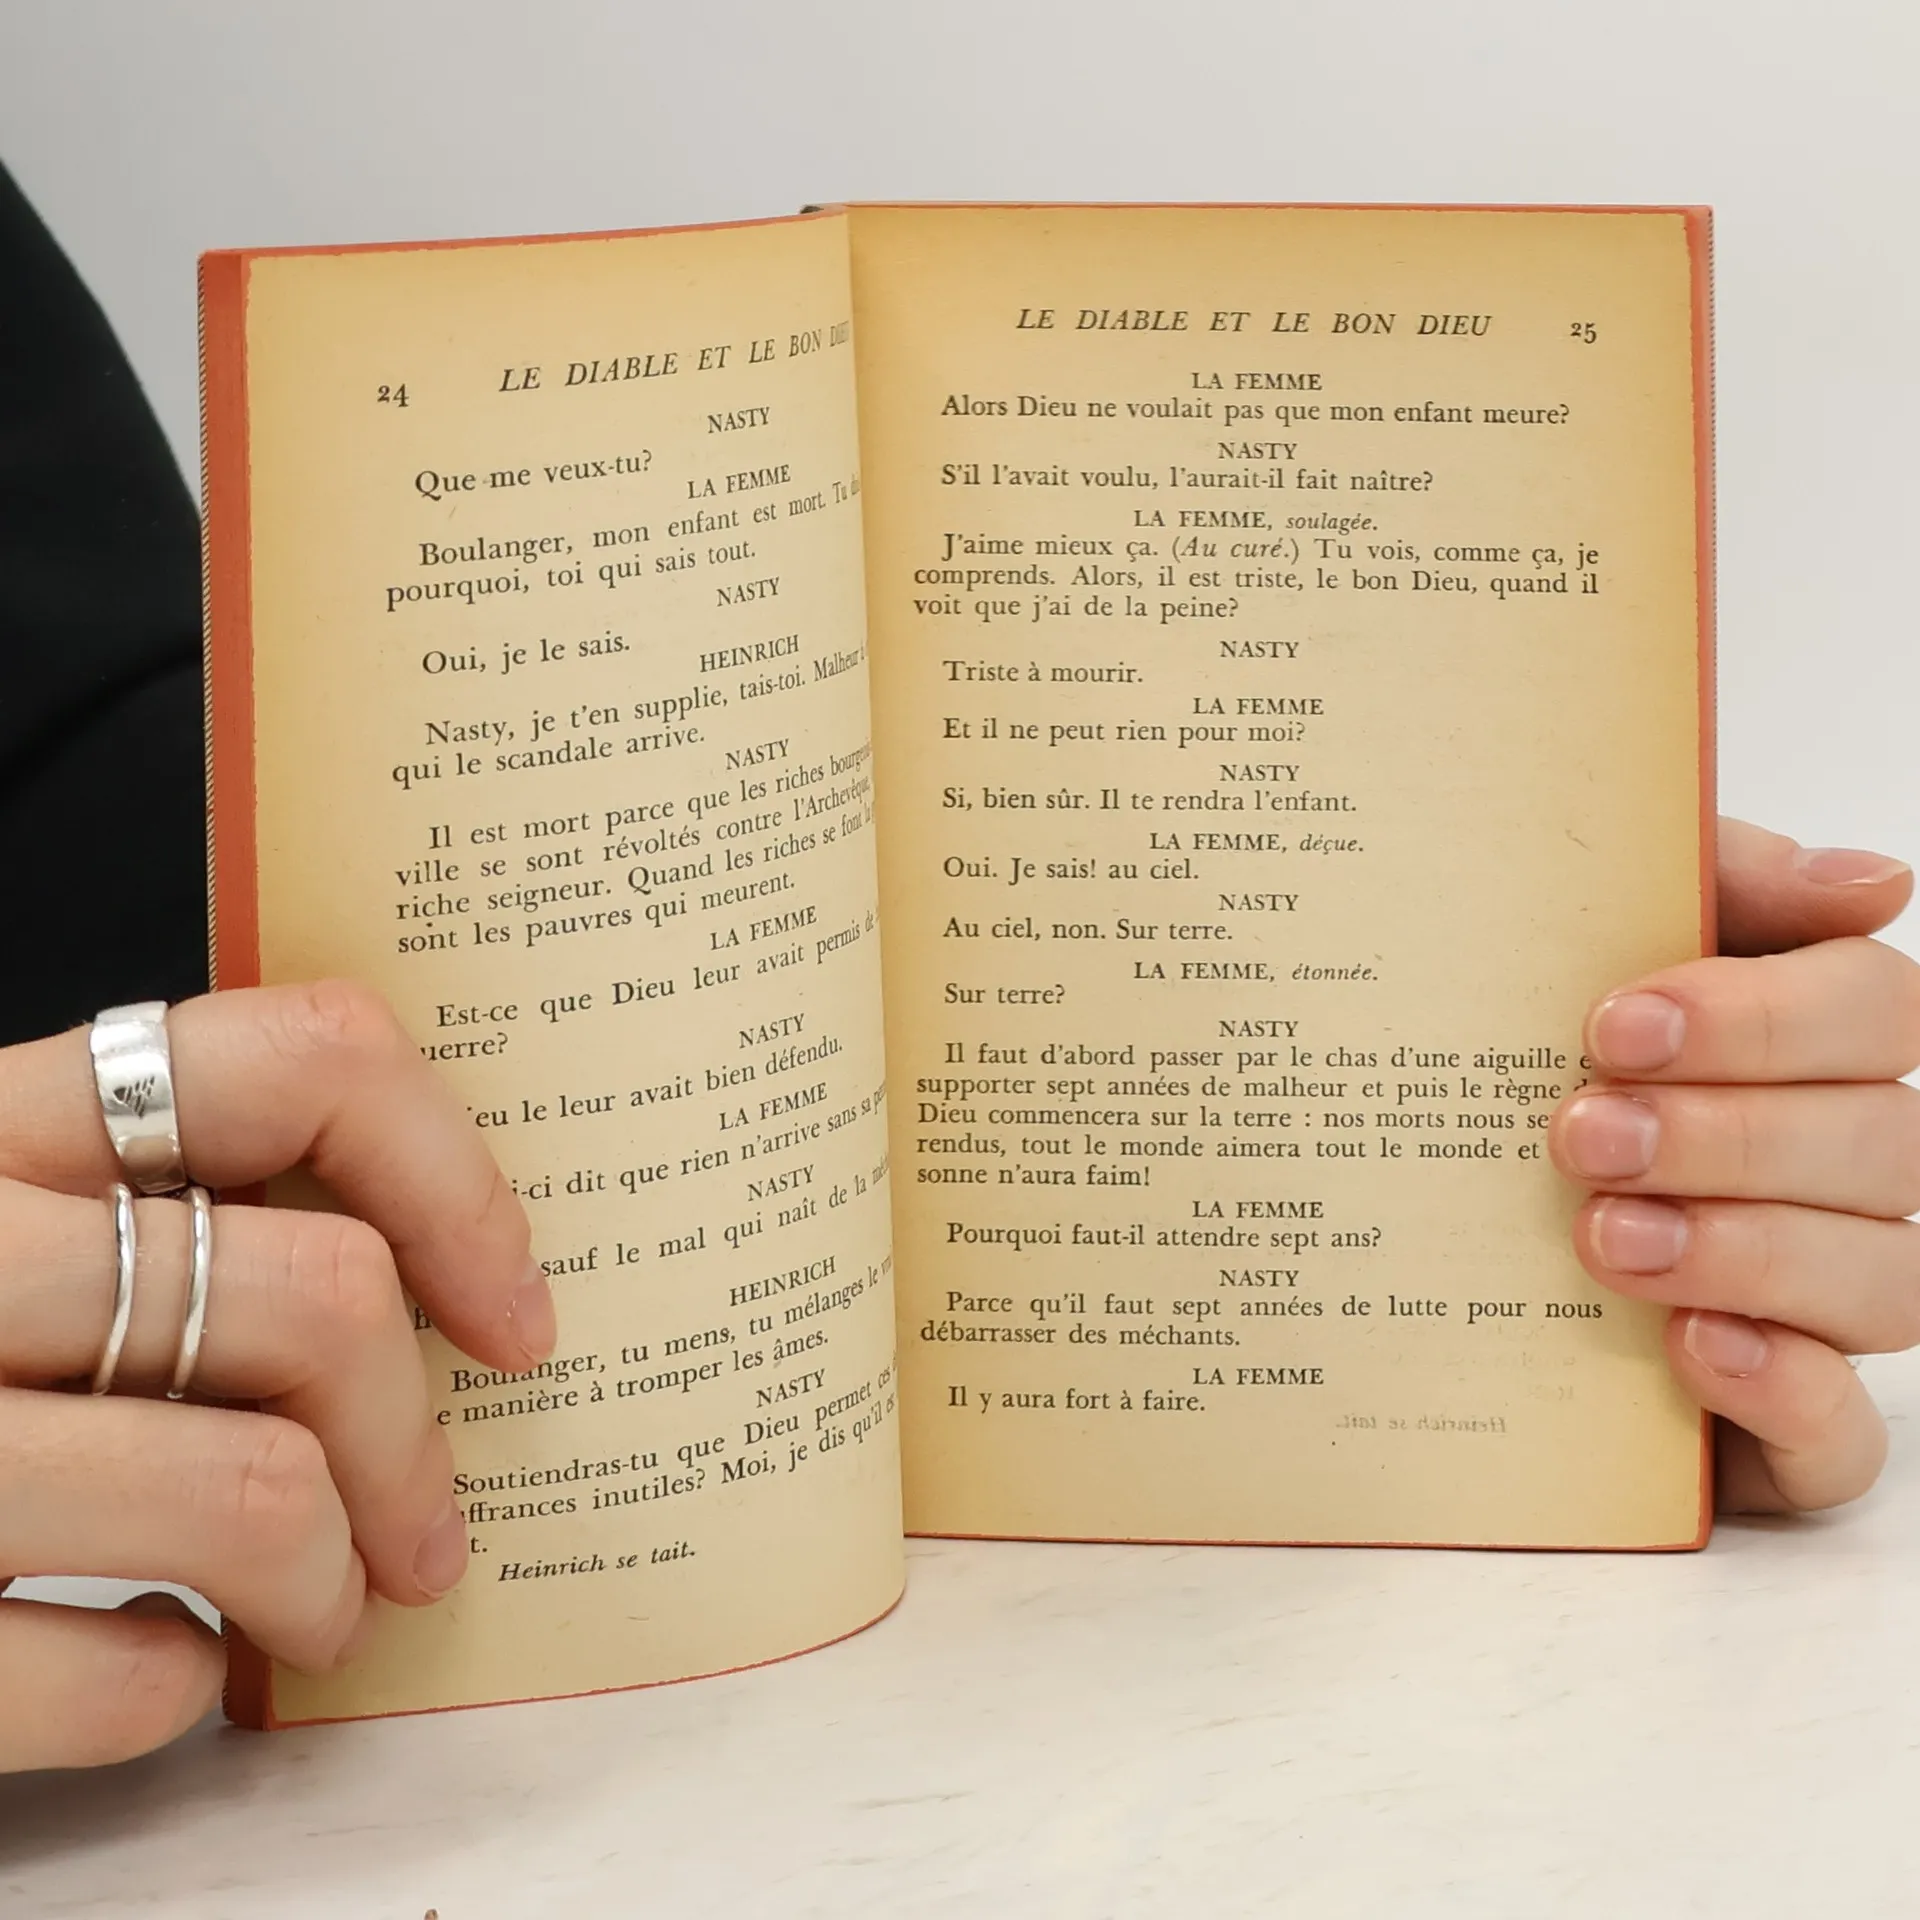 24 LE DIABLE ET LE BON DIEU
NASTY
Que me veux-tu?
LA FEMME
Boulanger, mon enfant est mort. Tu
pourquoi, toi qui sais tout.
NASTY
Oui, je le sais.
HEINRICH
Nasty, je t'en supplie, tais-toi. Malheur
qui le scandale arrive.
NASTY
Il est mort parce que les riches
ville se sont révoltés contre l'Archevêque,
riche seigneur. Quand les riches se font
sont les pauvres qui meurent.
LA FEMME
Est-ce que Dieu leur avait permis de
uerre?
NASTY
eu le leur avait bien défendu.
LA FEMME
i-ci dit que rien n'arrive sans sa
NASTY
sauf le mal qui naît de la
HEINRICH
Boulanger, tu mens, tu mélanges le
e manière à tromper les âmes.
NASTY
Soutiendras-tu que Dieu permet ces
uffrances inutiles? Moi, je dis qu'il
t.
Heinrich se tait.
LE DIABLE ET LE BON DIEU 25
LA FEMME
Alors Dieu ne voulait pas que mon enfant meure?
NASTY
S'il l'avait voulu, l'aurait-il fait naître?
LA FEMME, soulagée.
J'aime mieux ça. (Au curé.) Tu vois, comme ça, je
comprends. Alors, il est triste, le bon Dieu, quand il
voit que j'ai de la peine?
NASTY
Triste à mourir.
LA FEMME
Et il ne peut rien pour moi?
NASTY
Si, bien sûr. Il te rendra l'enfant.
LA FEMME, déçue.
Oui. Je sais! au ciel.
NASTY
Au ciel, non. Sur terre.
LA FEMME, étonnée.
Sur terre?
NASTY
Il faut d'abord passer par le chas d'une aiguille e
supporter sept années de malheur et puis le règne
Dieu commencera sur la terre : nos morts nous se
rendus, tout le monde aimera tout le monde et
sonne n'aura faim!
LA FEMME
Pourquoi faut-il attendre sept ans?
NASTY
Parce qu'il faut sept années de lutte pour nous
débarrasser des méchants.
LA FEMME
Il y aura fort à faire.